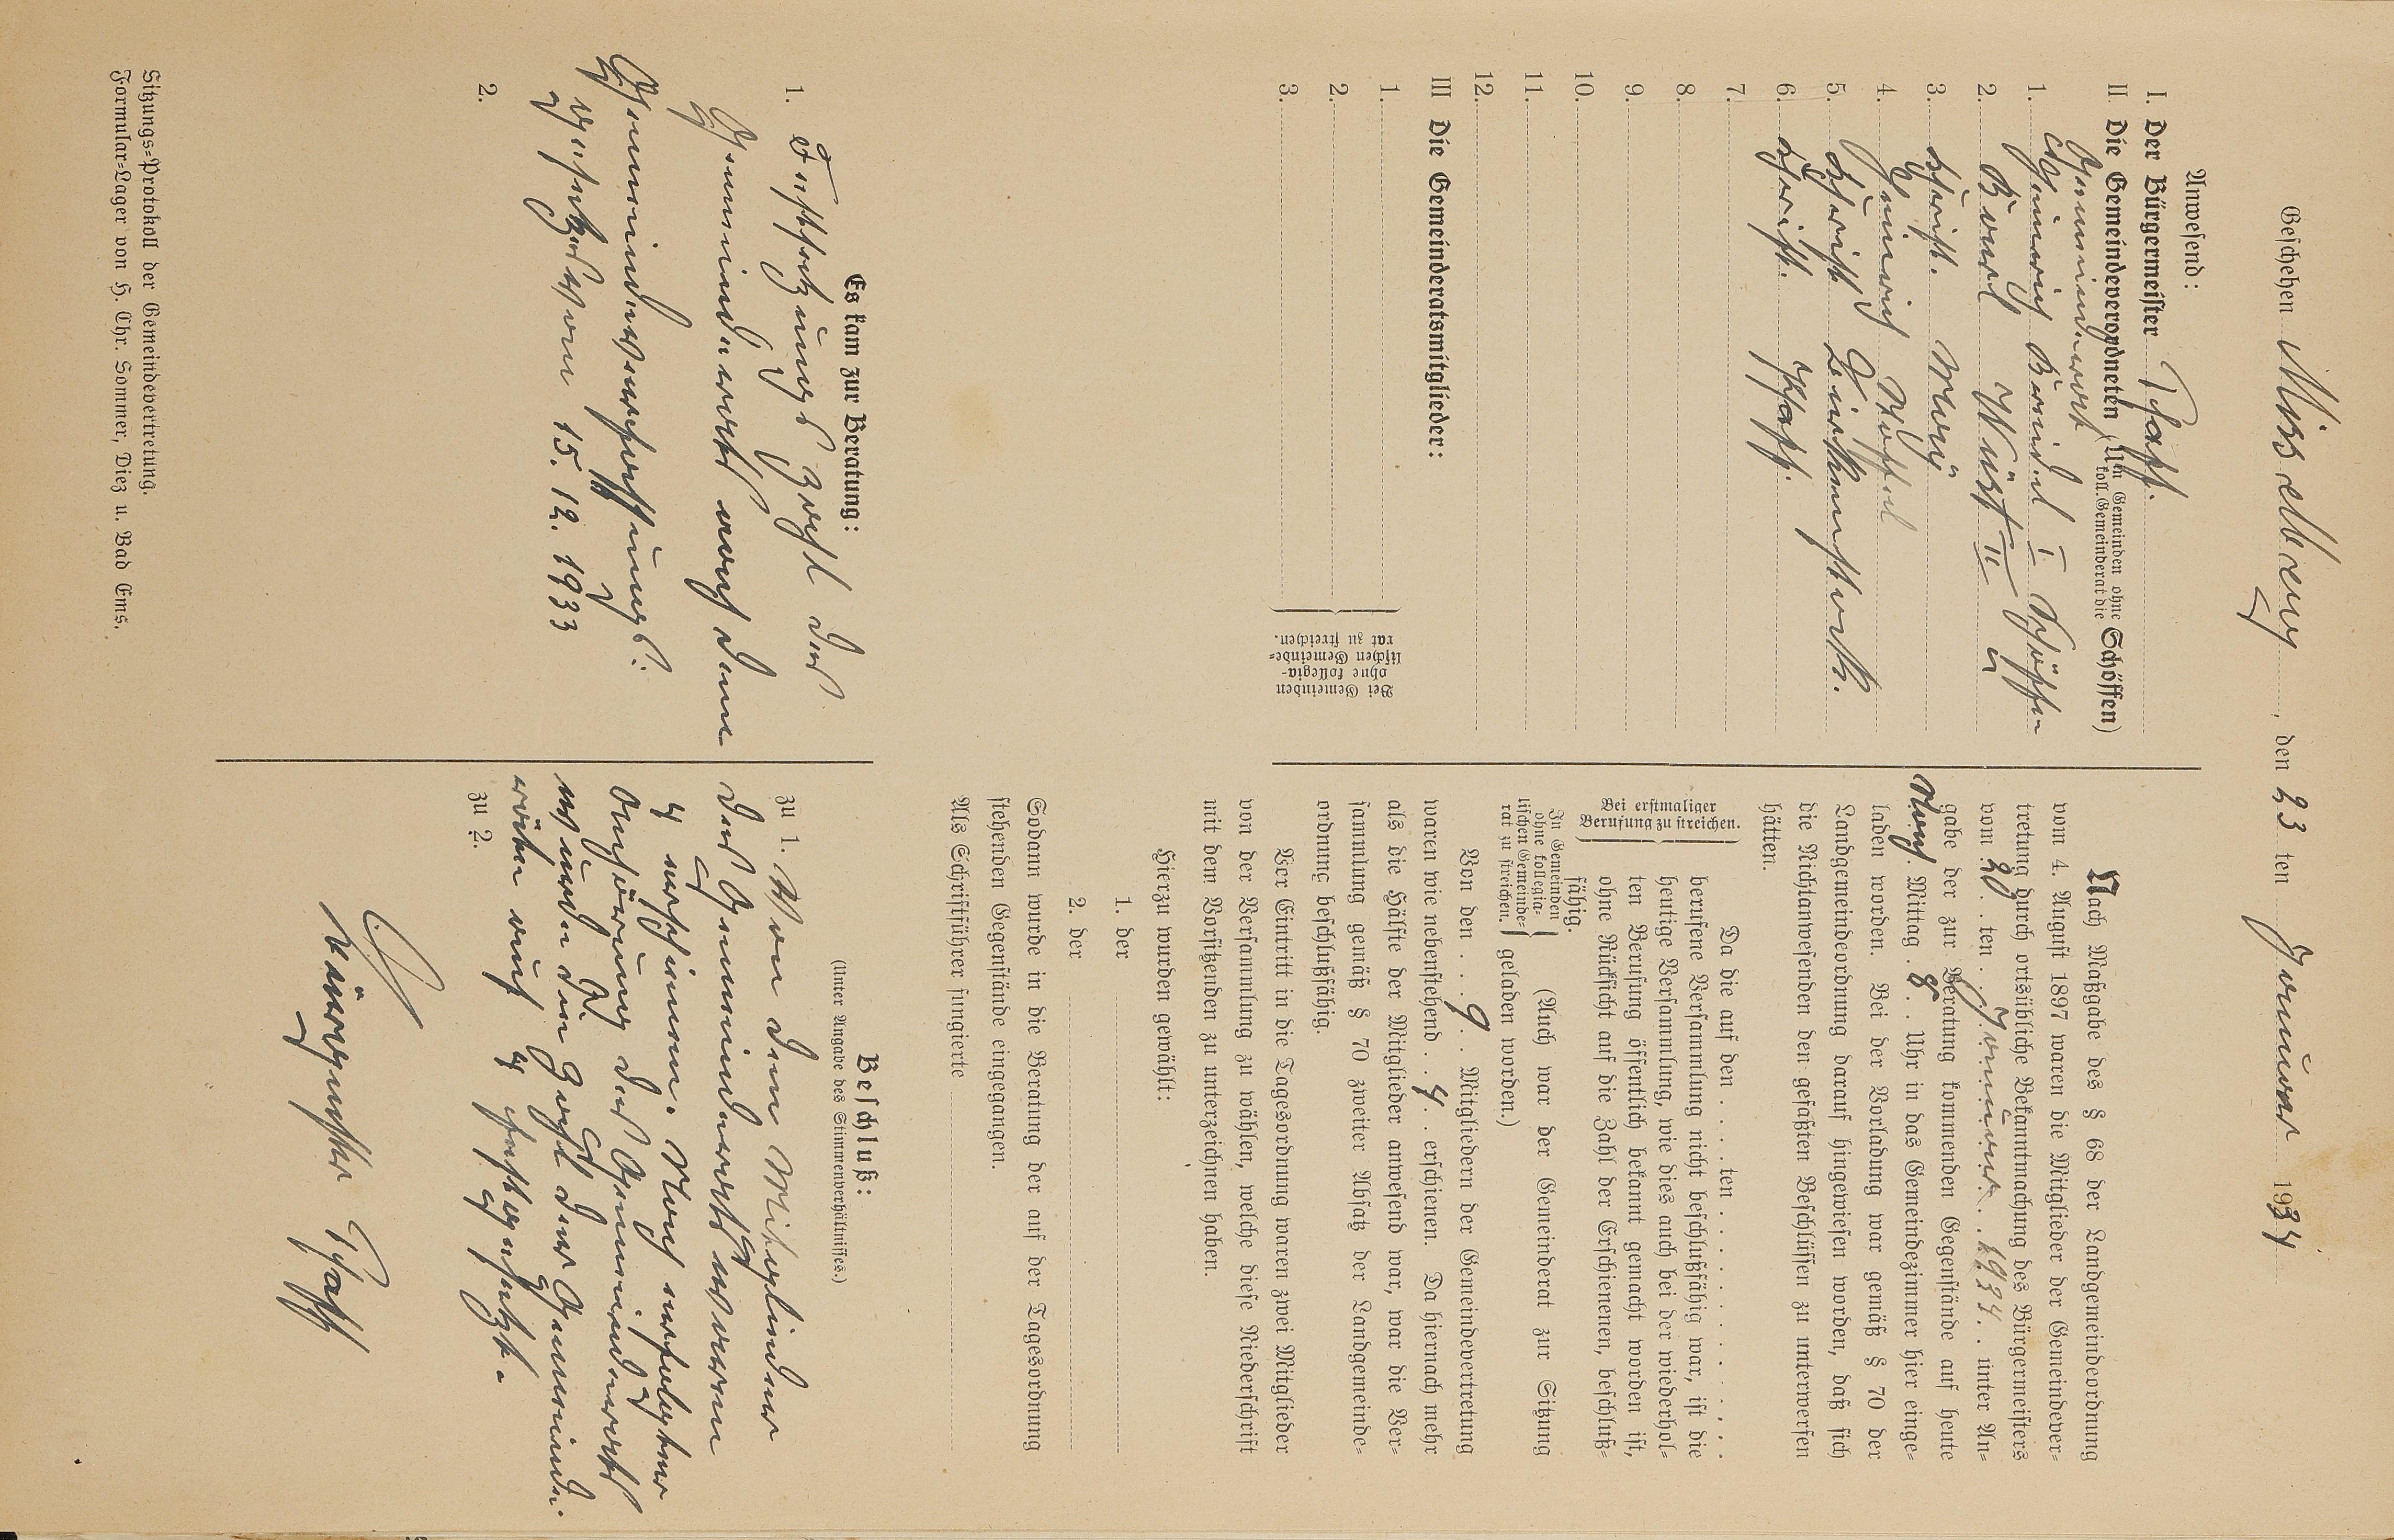 Geschehen Misselberg, den 23 ten Januar 1934
Anwesend:
I. Der Bürgermeister Pfaff.
II. Die Gemeindeverordneten (In Gemeinden ohne koll. Gemeinderat die Schöffen)
Gemeinderat
1. Heinrich I Schöffe
2. Karl II "
3. Christ.
4. Heinrich
5. Christ
6. Christ. Pfaff.
7.
8.
9.
10.
11.
12.
III Die Gemeinderatsmitglieder:
1.
2.
3.
Bei Gemeinden
ohne kollegia-
lischen Gemeinde-
rat zu streichen.
Nach Maßgabe des § 68 der Landgemeindeordnung
vom 4. August 1897 waren die Mitglieder der Gemeindever-
tretung durch ortsübliche Bekanntmachung des Bürgermeisters
vom 20. ten Januar 1934 unter An-
gabe der zur Beratung kommenden Gegenstände auf heute
Nach. Mittag 8 Uhr in das Gemeindezimmer hier einge-
laden worden. Bei der Vorladung war gemäß § 70 der
Landgemeindeordnung darauf hingewiesen worden, daß sich
die Nichtanwesenden den gefaßten Beschlüssen zu unterwerfen
hätten.
Bei erstmaliger
Berufung zu streichen.
Da die auf den . . . . ten . . . . . . . . .
berufene Versammlung nicht beschlußfähig war, ist die
heutige Versammlung, wie dies auch bei der wiederhol-
ten Berufung öffentlich bekannt gemacht worden ist,
ohne Rücksicht auf die Zahl der Erschienenen, beschluß-
fähig.
In Gemeinden
ohne kollegia-
lischen Gemeinde-
rat zu streichen.
(Auch war der Gemeinderat zur Sitzung
geladen worden.)
Von den . . . 9 . . Mitgliedern der Gemeindevertretung
waren wie nebenstehend . . 4 . . erschienen. Da hiernach mehr
als die Hälfte der Mitglieder anwesend war, war die Ver-
sammlung gemäß § 70 zweiter Absatz der Landgemeinde-
ordnung beschlußfähig.
Vor Eintritt in die Tagesordnung waren zwei Mitglieder
von der Versammlung zu wählen, welche diese Niederschrift
mit dem Vorsitzenden zu unterzeichnen haben.
Hierzu wurden gewählt:
1. der
2. der
Sodann wurde in die Beratung der auf der Tagesordnung
stehenden Gegenstände eingegangen.
Als Schriftführer fungierte
Es kam zur Beratung:
1. Festsetzung der Zahl der
Gemeinderäte nach dem
Gemeindeverfassungs:
gesetz vom 15. 12. 1933
2.
Beschluß:
(Unter Angabe des Stimmenverhältnisses.)
zu 1. Von den Mitgliedern
des Gemeinderats waren
4 erschienen. Nach erfolgter
Anhörung des Gemeinderats
wurde die Zahl der Gemeinde-
räte auf 4 festgesetzt.
zu 2.
Der
Bürgermeister Pfaff
Sitzungs-Protokoll der Gemeindevertretung.
Formular-Lager von H. Chr. Sommer, Diez u. Bad Ems.